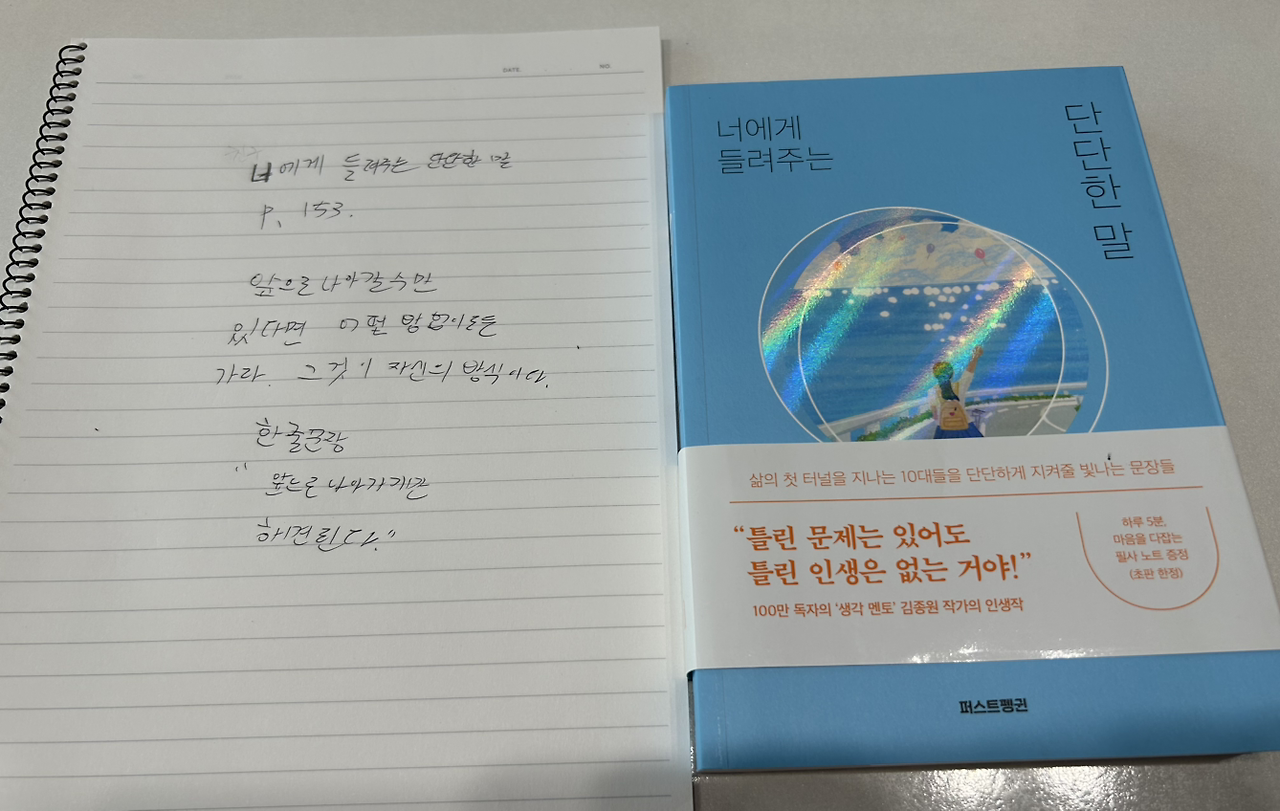 DATE. NO.
너에게 들려주는 단단한 말
P. 153.
앞으로 나아갈 수만
있다면 어떤 방향이든
가라. 그것이 자신의 방식이다.
한글문랑
"앞으로 나아가
해견린다."
너에게
들려주는
단단한 말
삶의 첫 터널을 지나는 10대들을 단단하게 지켜줄 빛나는 문장들
"틀린 문제는 있어도
틀린 인생은 없는 거야!"
100만 독자의 '생각 멘토' 김종원 작가의 인생작
하루 5분,
마음을 다잡는
필사 노트 증정
(초판 한정)
퍼스트펭귄